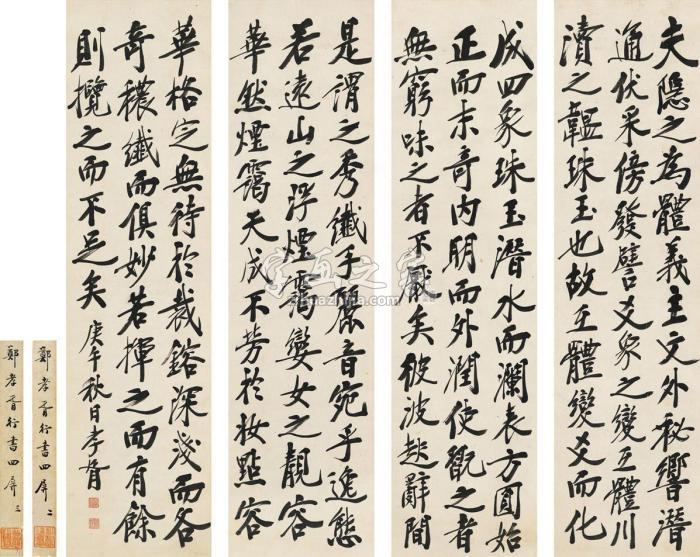 夫隱之為體義主文外秘響潛
通伏采傍發譬爻象之變互體川
瀆之韞珠玉也故互體變爻而化
成四象珠玉潛水而瀾表方圓始
正而末奇內明而外潤使翫之者
無窮味之者不厭矣彼波起辭間
是謂之秀纖手麗音宛乎逸態
若遠山之浮煙靄孌女之靚容
華然煙靄天成不勞於妝點容
華格定無待於裁鎔深淺而各
奇穠纖而俱妙若揮之而有餘
則攬之而不足矣 庚午秋日孝胥
鄭孝胥行書四屏 二
鄭孝胥行書四屏 三
字画之家